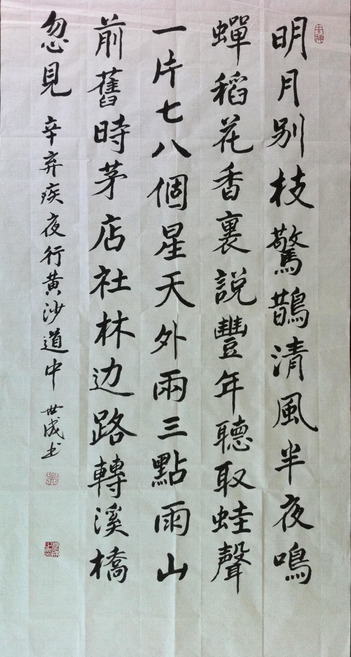 明月別枝驚鵲清風半夜鳴
蟬稻花香裏説豐年聽取蛙聲
一片七八個星天外兩三點雨山
前舊時茅店社林边路轉溪橋
忽見 辛弃疾夜行黄沙道中 世成书